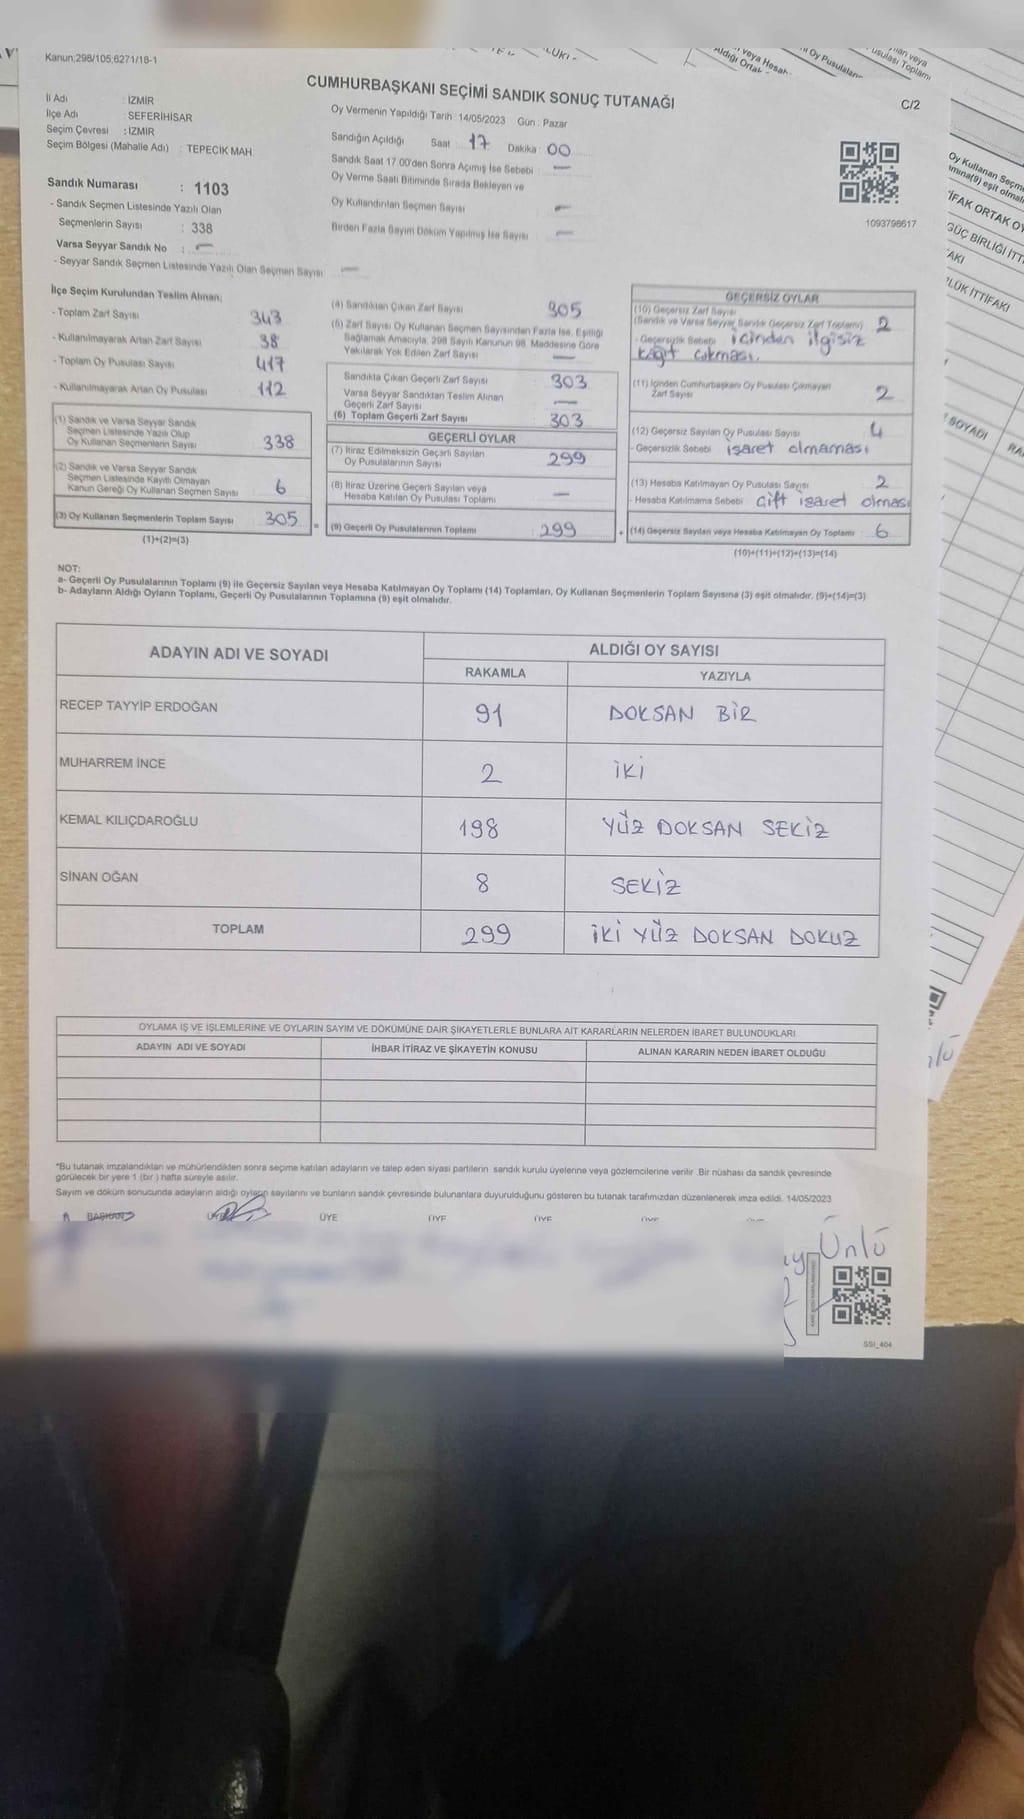 Kanun;298/105;6271/18-1
CUMHURBAŞKANI SEÇİMİ SANDIK SONUÇ TUTANAĞI
C/2
İl Adı : İZMİR
İlçe Adı : SEFERİHİSAR
Seçim Çevresi : İZMİR
Seçim Bölgesi (Mahalle Adı) : TEPECİK MAH.
Sandık Numarası : 1103
- Sandık Seçmen Listesinde Yazılı Olan
Seçmenlerin Sayısı : 338
Varsa Seyyar Sandık No : —
- Seyyar Sandık Seçmen Listesinde Yazılı Olan Seçmen Sayısı —
Oy Vermenin Yapıldığı Tarih : 14/05/2023 Gün : Pazar
Sandığın Açıldığı Saat : 17 Dakika : 00
Sandık Saat 17.00'den Sonra Açımış İse Sebebi : —
Oy Verme Saati Bitiminde Sırada Bekleyen ve
Oy Kullandırılan Seçmen Sayısı —
Birden Fazla Sayım Döküm Yapılmış İse Sayısı —
1093798617
İlçe Seçim Kurulundan Teslim Alınan;
- Toplam Zarf Sayısı 343
- Kullanılmayarak Artan Zarf Sayısı 38
- Toplam Oy Pusulası Sayısı 417
- Kullanılmayarak Artan Oy Pusulası 112
(1) Sandık ve Varsa Seyyar Sandık
Seçmen Listesinde Yazılı Olup
Oy Kullanan Seçmenlerin Sayısı 338
(2) Sandık ve Varsa Seyyar Sandık
Seçmen Listesinde Kayıtlı Olmayan
Kanun Gereği Oy Kullanan Seçmen Sayısı 6
(3) Oy Kullanan Seçmenlerin Toplam Sayısı 305
(1)+(2)=(3)
(4) Sandıktan Çıkan Zarf Sayısı 305
(5) Zarf Sayısı Oy Kullanan Seçmen Sayısından Fazla İse, Eşitliği
Sağlamak Amacıyla, 298 Sayılı Kanunun 98. Maddesine Göre
Yakılarak Yok Edilen Zarf Sayısı —
Sandıkta Çıkan Geçerli Zarf Sayısı 303
Varsa Seyyar Sandıktan Teslim Alınan
Geçerli Zarf Sayısı —
(6) Toplam Geçerli Zarf Sayısı 303
GEÇERLİ OYLAR
(7) İtiraz Edilmeksizin Geçerli Sayılan
Oy Pusulalarının Sayısı 299
(8) İtiraz Üzerine Geçerli Sayılan veya
Hesaba Katılan Oy Pusulası Toplamı —
= (9) Geçerli Oy Pusulalarının Toplamı 299 +
GEÇERSİZ OYLAR
(10) Geçersiz Zarf Sayısı
(Sandık ve Varsa Seyyar Sandık Geçersiz Zarf Toplamı) 2
- Geçersizlik Sebebi : içinden ilgisiz
kağıt çıkması.
(11) İçinden Cumhurbaşkanı Oy Pusulası Çıkmayan
Zarf Sayısı 2
(12) Geçersiz Sayılan Oy Pusulası Sayısı 4
- Geçersizlik Sebebi işaret olmaması
(13) Hesaba Katılmayan Oy Pusulası Sayısı 2
- Hesaba Katılmama Sebebi Çift işaret olması
(14) Geçersiz Sayılan veya Hesaba Katılmayan Oy Toplamı : 6
(10)+(11)+(12)+(13)=(14)
NOT:
a- Geçerli Oy Pusulalarının Toplamı (9) ile Geçersiz Sayılan veya Hesaba Katılmayan Oy Toplamı (14) Toplamları, Oy Kullanan Seçmenlerin Toplam Sayısına (3) eşit olmalıdır. (9)+(14)=(3)
b- Adayların Aldığı Oyların Toplamı, Geçerli Oy Pusulalarının Toplamına (9) eşit olmalıdır.
ADAYIN ADI VE SOYADI
ALDIĞI OY SAYISI
RAKAMLA YAZIYLA
RECEP TAYYİP ERDOĞAN 91 DOKSAN BİR
MUHARREM İNCE 2 İKİ
KEMAL KILIÇDAROĞLU 198 YÜZ DOKSAN SEKİZ
SİNAN OĞAN 8 SEKİZ
TOPLAM 299 İKİ YÜZ DOKSAN DOKUZ
OYLAMA İŞ VE İŞLEMLERİNE VE OYLARIN SAYIM VE DÖKÜMÜNE DAİR ŞİKAYETLERLE BUNLARA AİT KARARLARIN NELERDEN İBARET BULUNDUKLARI
ADAYIN ADI VE SOYADI İHBAR İTİRAZ VE ŞİKAYETİN KONUSU ALINAN KARARIN NEDEN İBARET OLDUĞU
*Bu tutanak imzalandıktan ve mühürlendikten sonra seçime katılan adayların ve talep eden siyasi partilerin sandık kurulu üyelerine veya gözlemcilerine verilir. Bir nüshası da sandık çevresinde
görülecek bir yere 1 (bir) hafta süreyle asılır.
Sayım ve döküm sonucunda adayların aldığı oyların sayılarını ve bunların sandık çevresinde bulunanlara duyurulduğunu gösteren bu tutanak tarafımızdan düzenlenerek imza edildi. 14/05/2023
BAŞKAN ÜYE ÜYE ÜYE ÜYE ÜYE
Ünlü
SSI_404
veya Hesab
Aldığı Ortak
Oy Pusulaları
Oy Kullanan Seçme
eşit olmalı
İFAK ORTAK OY
GÜÇ BİRLİĞİ İTT
AKI
LÜK İTTİFAKI
SOYADI